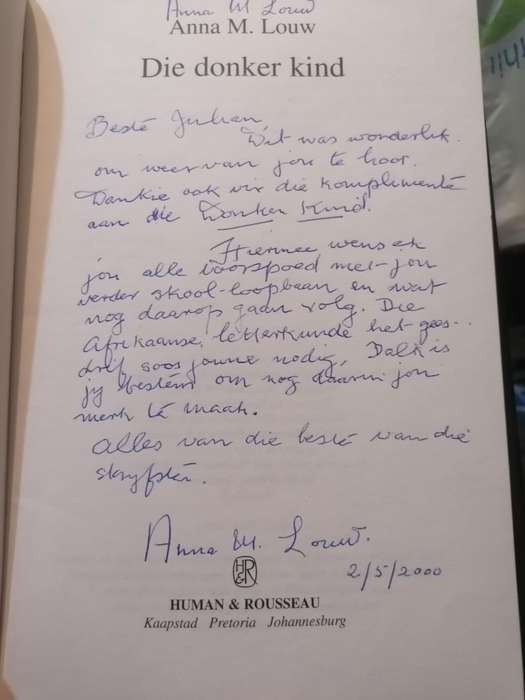 Anna M Louw
Anna M. Louw
Die donker kind
Beste Julian,
Dit was wonderlik
om weer van jou te hoor.
Dankie ook vir die komplimente
aan die Donker Kind.
Hiermee wens ek
jou alle voorspoed met jou
verder skool-loopbaan en wat
nog daarop gaan volg. Die
Afrikaanse letterkunde het gees-
drif soos joune nodig. Dalk is
jy bestem om nog daarin jou
merk te maak.
Alles van die beste van die
skryfster.
Anna M. Louw.
2/5/2000
H&R
HUMAN & ROUSSEAU
Kaapstad Pretoria Johannesburg